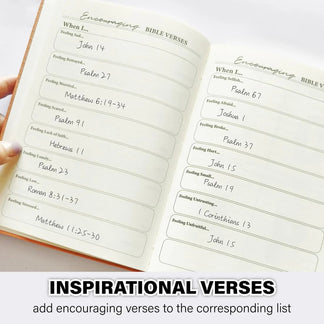 Encouraging BIBLE VERSES
When I...
Feeling Sad...
John 14
Feeling Betrayed...
Psalm 27
Feeling Worried...
Matthew 6:19-34
Feeling Scared...
Psalm 91
Feeling Lack of faith...
Hebrews 11
Feeling Lonely...
Psalm 23
Feeling Low...
Roman 8:31-37
Feeling Stressed...
Matthew 11:25-30
Encouraging BIBLE VERSES
When I...
Feeling Selfish...
Psalm 67
Feeling Afraid...
Joshua 1
Feeling Broke...
Psalm 37
Feeling Hurt...
John 15
Feeling Small...
Psalm 19
Feeling Untrusting...
1 Corinthians 13
Feeling Unfruitful...
John 15
INSPIRATIONAL VERSES
add encouraging verses to the corresponding list